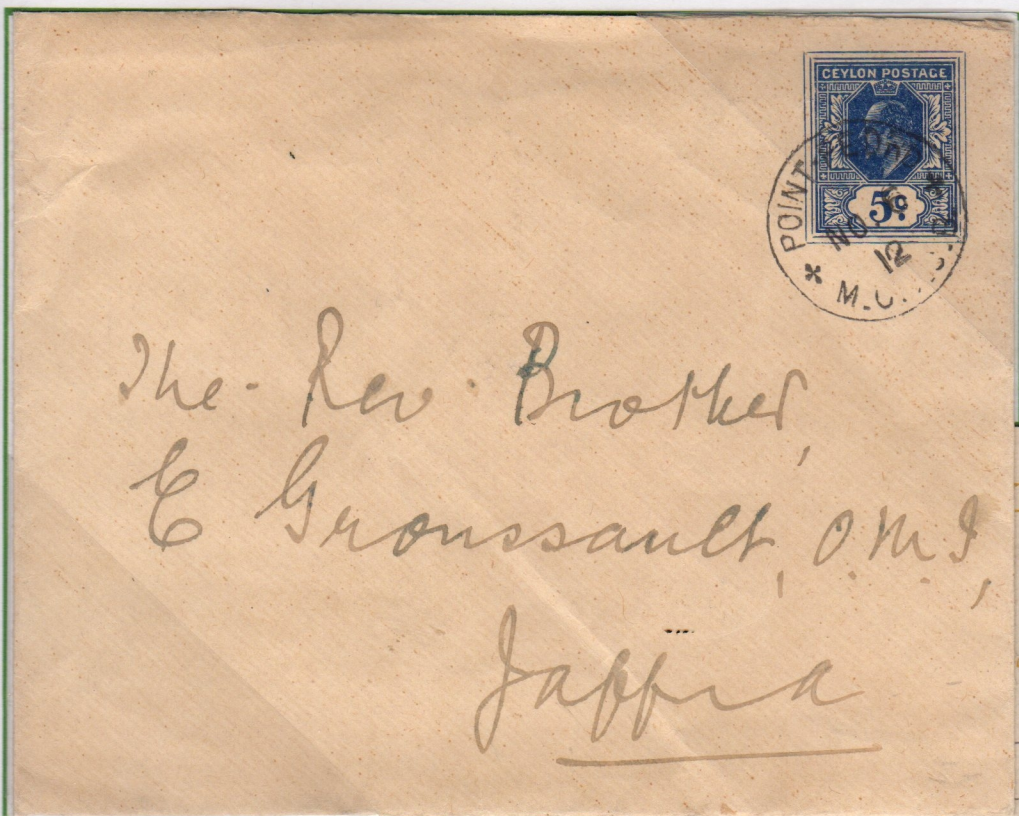 CEYLON POSTAGE
5c.
POINT-PEDRO
NO 
12
M.O.
The. Rev. Brother,
E Groussault, O.M.I,
Jaffna